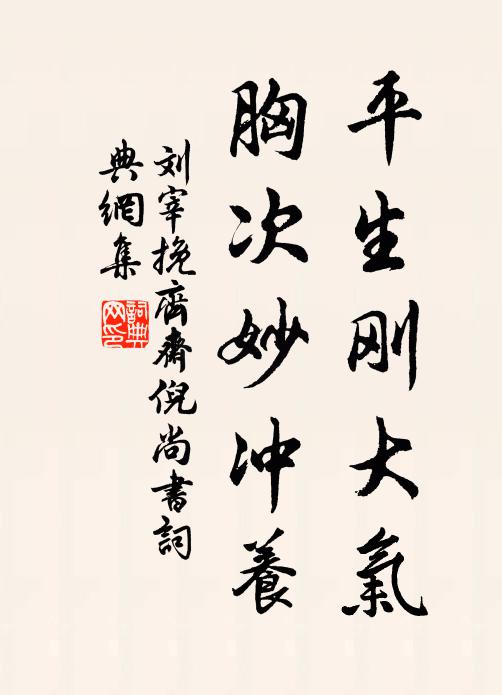 平生刚大氣
胸次妙冲養
刘宰挽齊齋倪尚書詞
典網集
詞典網印